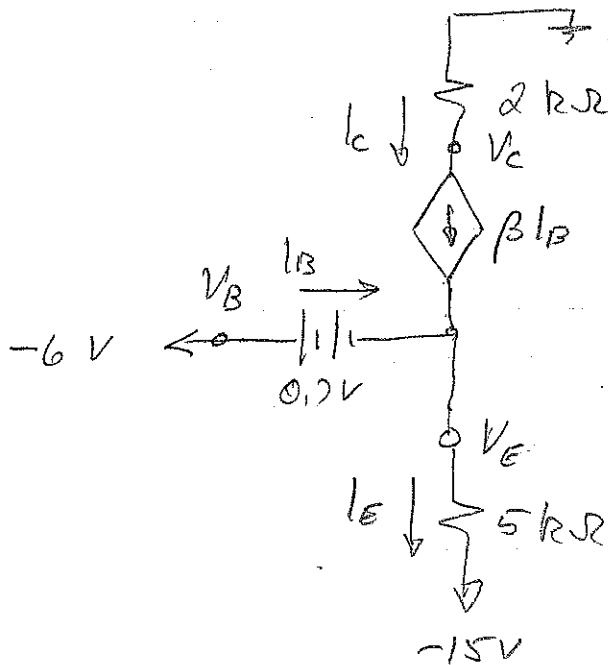 2 kΩ
I_C
V_C
βI_B
I_B
V_B
-6 V
0.7V
V_E
I_E
5 kΩ
-15V